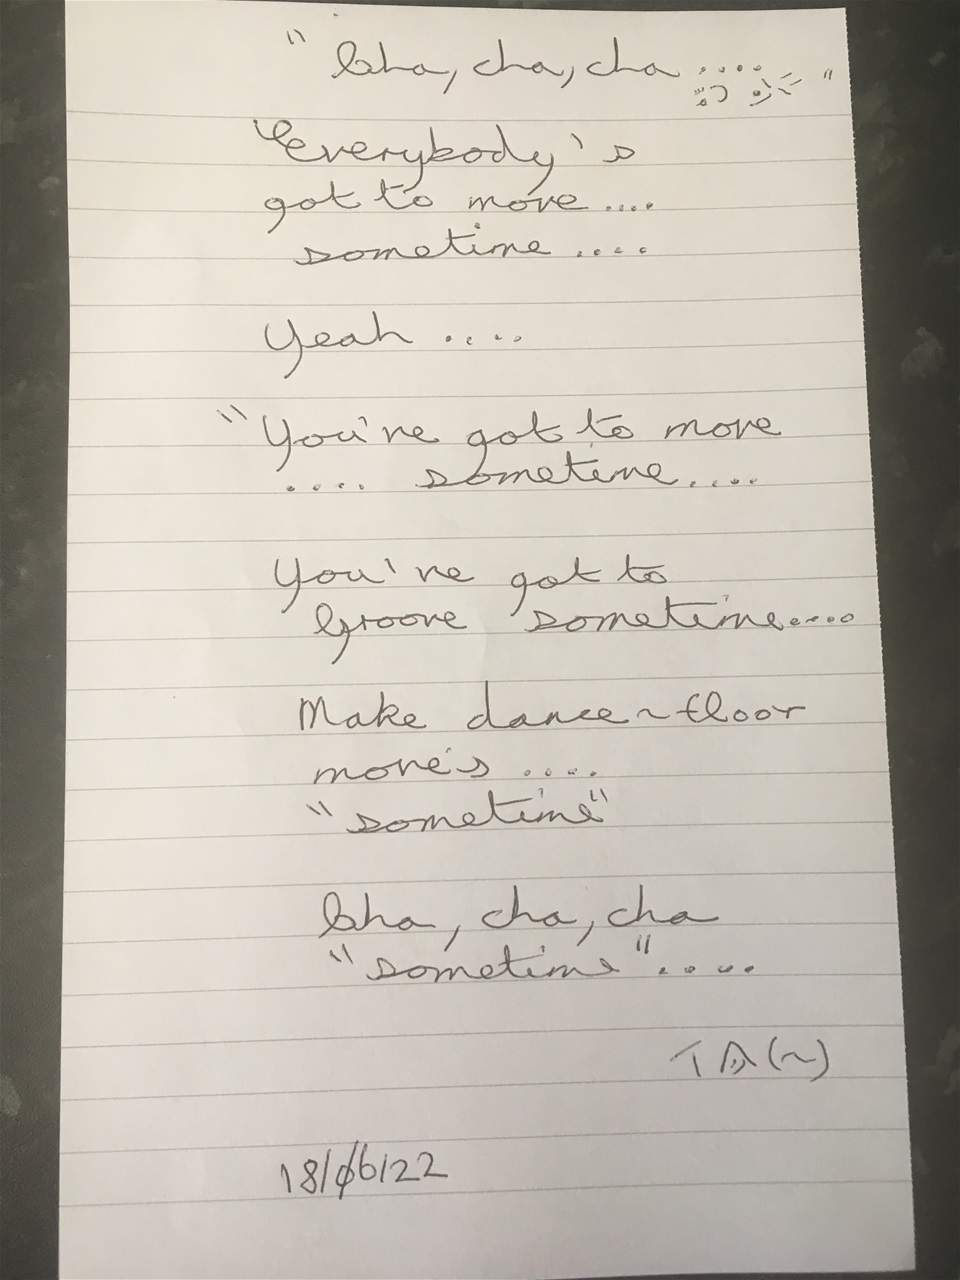 "Cha, cha, cha .... "
"Everybody's
got to move ....
sometime ....
Yeah ....
"You've got to move
.... sometime ....
You've got to
Groove sometime....
Make dance~floor
move's ....
"sometime"
Cha, cha, cha
"sometime" ....
TA(~)
18/06/22